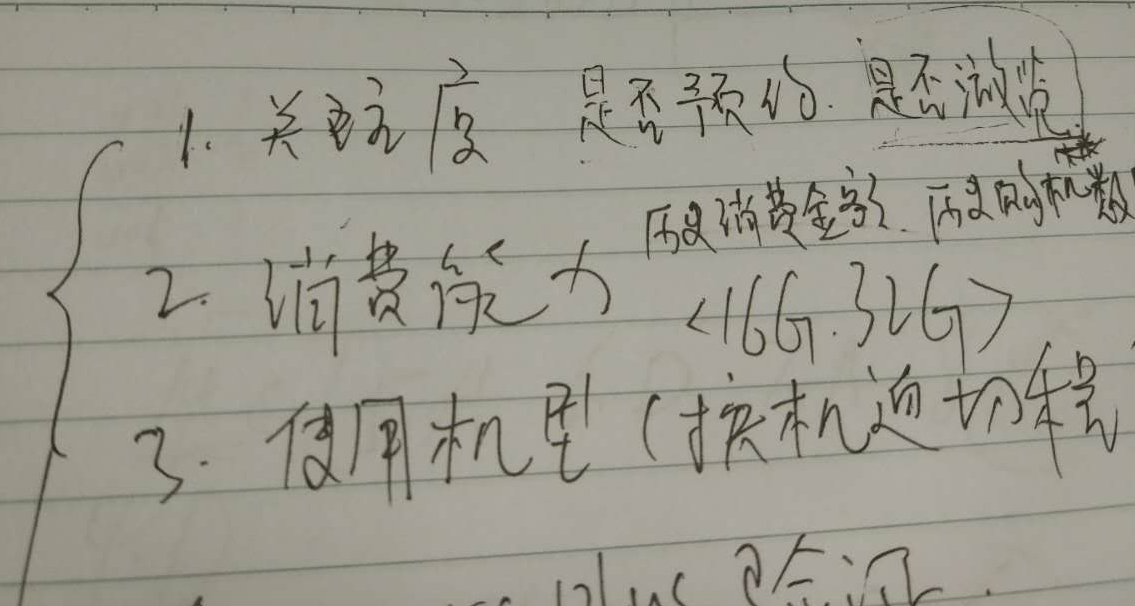 1. 关注度 是否预约. 是否浏览
历史消费金额. 历史购机数
2. 消费能力 <16G.32G>
3. 使用机型 (换机迫切程
plus 验证.